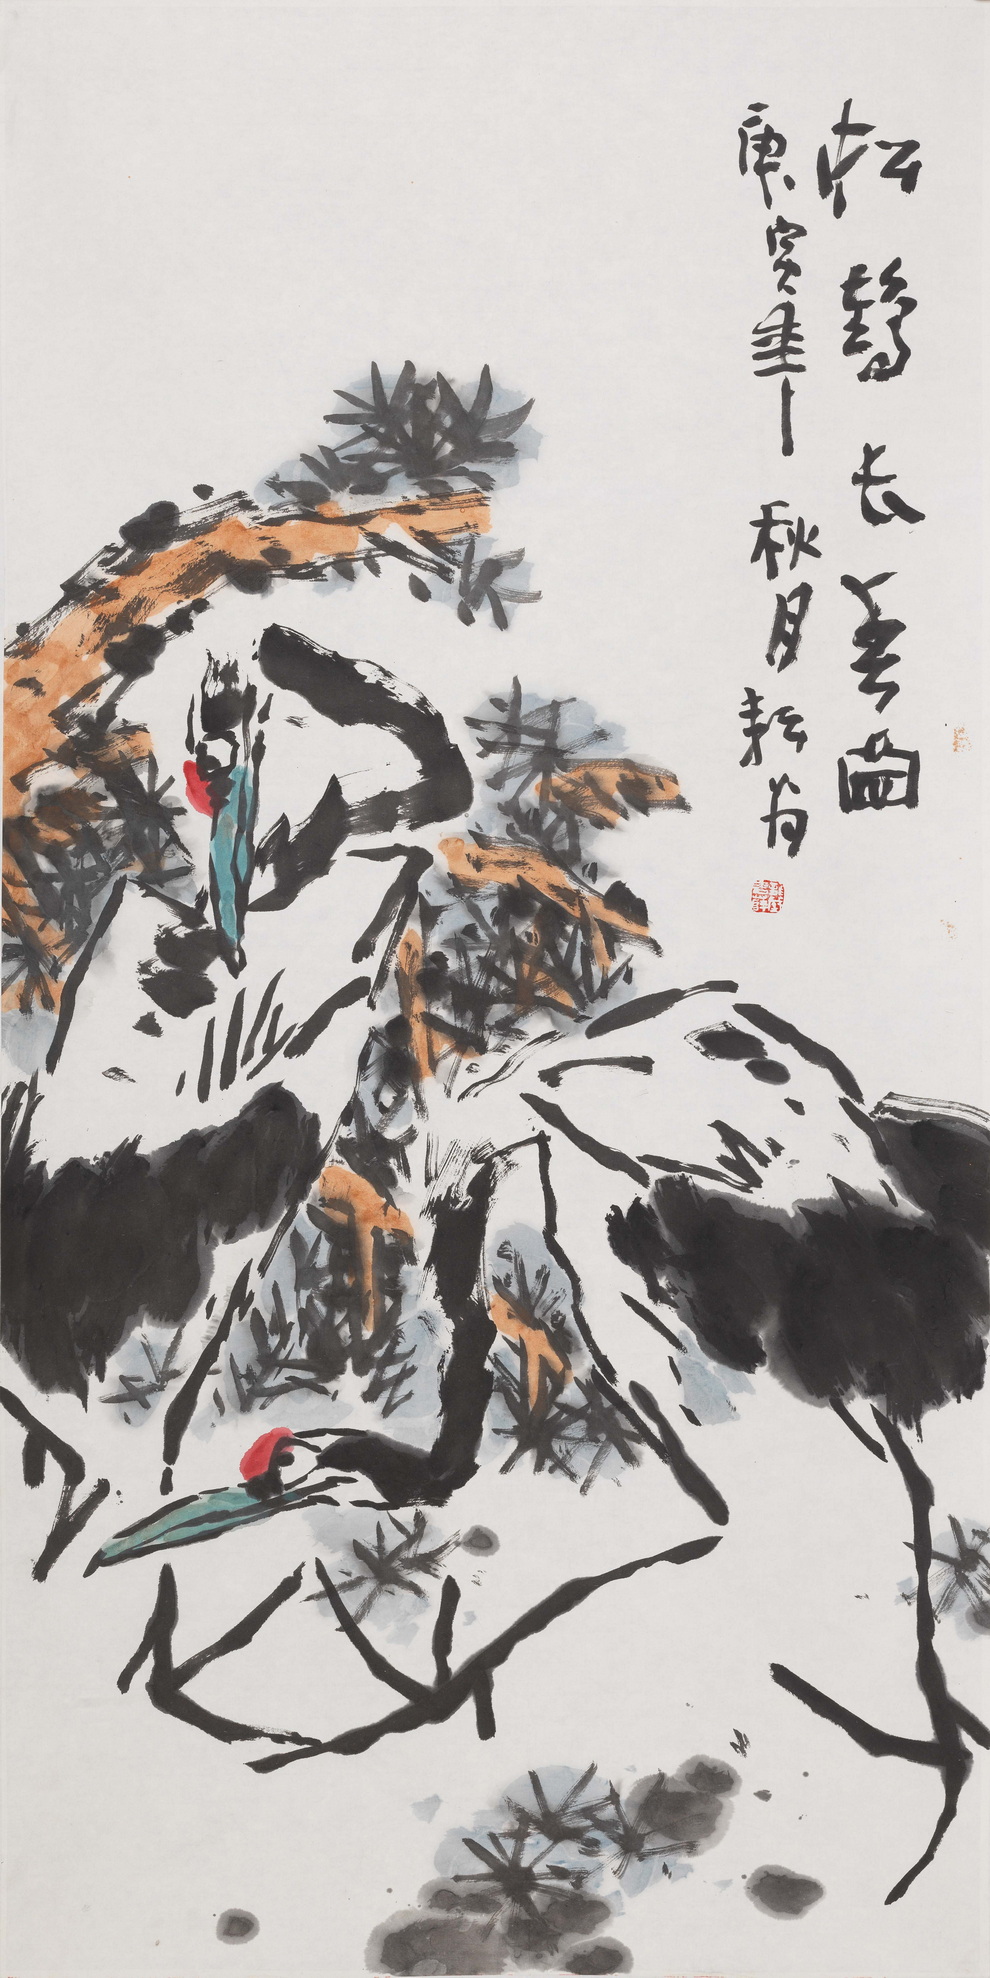 松鹤长春图
庚寅年秋月耘谷